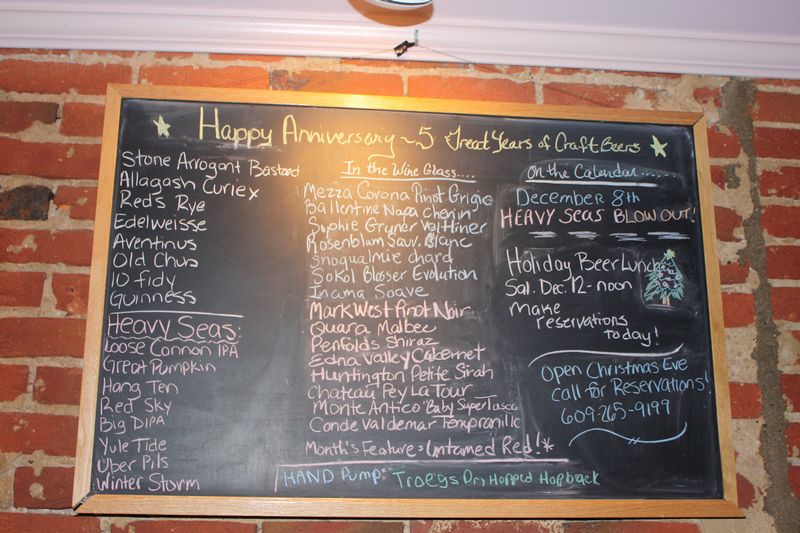 Happy Anniversary ~ 5 Great Years of Craft Beers
Stone Arrogant Bastard
Allagash Curiex
Red's Rye
Edelweisse
Aventinus
Old Chub
10 fidy
Guinness
Heavy Seas:
Loose Cannon IPA
Great Pumpkin
Hang Ten
Red Sky
Big DIPA
Yule Tide
Über Pils
Winter Storm
In the Wine Glass....
Mezza Corona Pinot Grigio
Ballentine Napa chenin
Sophie Gruner Veltliner
Rosenblum Sauv. Blanc
snoqualmie chard
Sokol Blosser Evolution
Inama Soave
Mark West Pinot Noir
Quara Malbec
Penfolds Shiraz
Edna Valley Cabernet
Huntington Petite Sirah
Chateau Pey La Tour
Monte Antico "Baby Super Tusca
Conde Valdemar Tempranillo
Month's Feature > Untamed Red! *
HAND Pump: Troegs Dry Hopped Hopback
On the Calendar......
December 8th
HEAVY SEAS BLOW OUT!
Holiday Beer Lunch
Sat. Dec. 12 - noon
make
reservations
today!
Open Christmas Eve
Call for Reservations!
609-265-9199